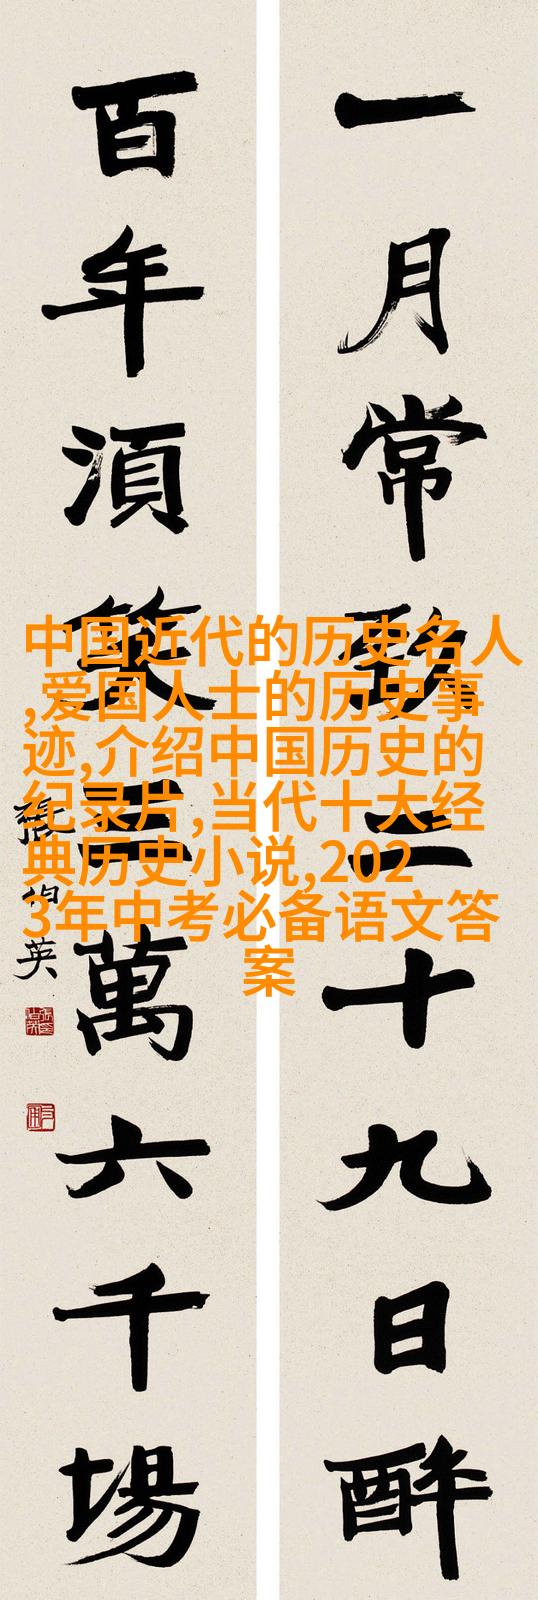 一月常二十九日醉
百年湏笑三萬六千場
張伯英
中国近代的历史名人
,爱国人士的历史事
迹,介绍中国历史的
纪录片,当代十大经
典历史小说,202
3年中考必备语文答
案